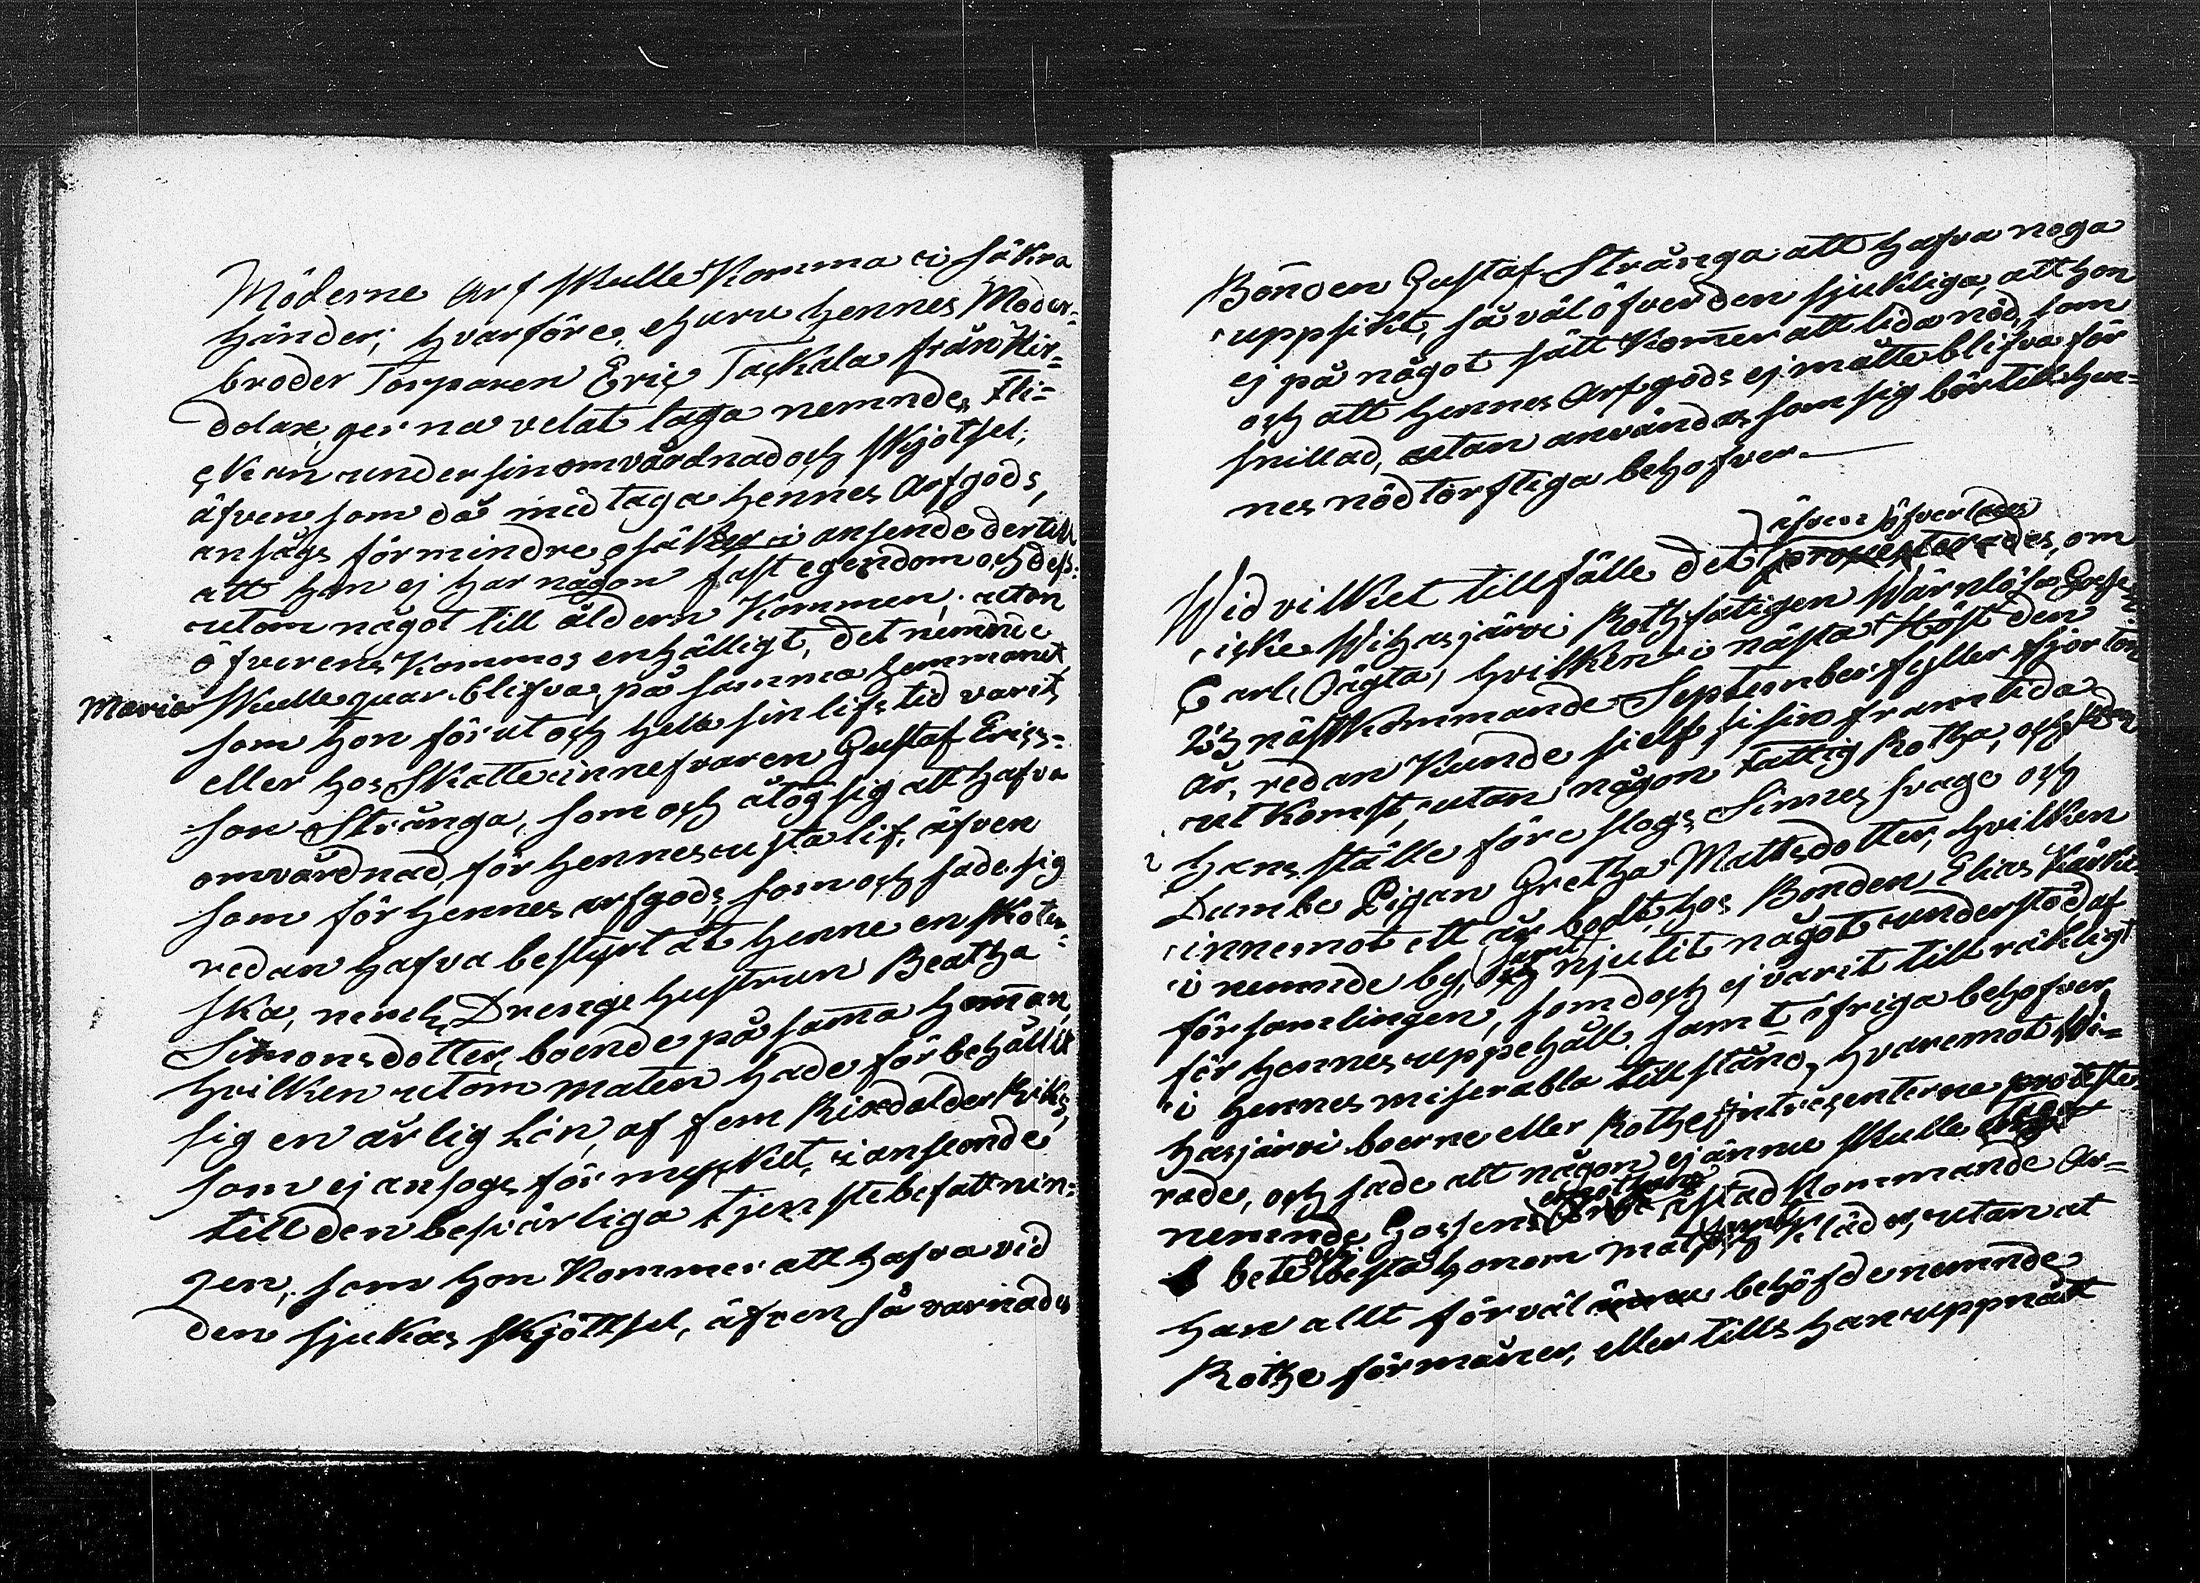 Möderne Arf skulle komma i säkra
händer; hvarföre, ehuru hennes Moder-
broder Torparen Eric Taskala från Kir-
dolax, gerna velat taga nemnde Fli-
ckan under sin omvårdnad och skjötsel;
äfven som då med taga hennes Arfgods,
ansågs förmindre säker i anseende dertill
att han ej har någon fast egendom och dess-
utom något till åldern kommen; utan
öfverens kommos enhälligt, det nemnde
Maria skulle quar blifva på samma hemmanet
som hon förut och hela sin lifs tid varit,
eller hos Skatte innefvaren Gustaf Erics-
son Strånga, som och åtog sig att hafva
omvårdnad, för hennes usta lif, äfven
som för hennes arfgods, som och sade sig
redan hafva bestyrt åt henne en sköter-
ska, neml. Drenge hustrun Beatha
Simonsdotter, boende på sam̄a hem̄an,
hvilken utom maten hade förbehållit
sig en årlig Lön, af fem Rixdalder Riks,
som ej ansogs för mycket, i anseende
till den besvärliga tjenstebefattnin-
gen, som hon kommer att hafva vid
den sjukas skjöttsel, äfven så varnades
Bonden Gustaf Strånga att hafva noga
uppsikt, så väl öfver den sjukliga, att hon
ej på något sätt kom̄er att lida nöd, som
och att hennes Arfgods ej måtte blifva för
snillad, utan användas som sig bör till hen-
nes nödtorftiga behofver.
äfven öfverlades
Wid vilket tillfälle det proponerades, om
icke Wihasjärvi Roth fatigen Wärnlösa Gossen
Carl Oägta, hvilken i nästa Höst den
23 nästkommande September fyller fjorton
år, redan kunde sielf få sin framtida
utkomst, utan någon Fattig Rotha, och
hans ställe före slogs Sinnes svage och
Dumbe Pigan Gretha Mattsdotter, hvilken
innemot ett år bodt hos Bonden Elias
i nemnde by, samt njutit något understöd af
församlingen, som doch ej varit till räkligt
för hennes uppehåll, samt öfriga behofver
i hennes miserabla tillstånd, hvaremot Wi-
hasjärvi boerne eller Rothe Intresenterne proteste-
rade, och sade att någon ej ännu skulle
nemnde Gossens åstad kommande Ar-
bete och bestå honom mat samt kläder, utan at
han allt förväl behöfde nemnde
Rothe förmåner, eller tills han uppnått